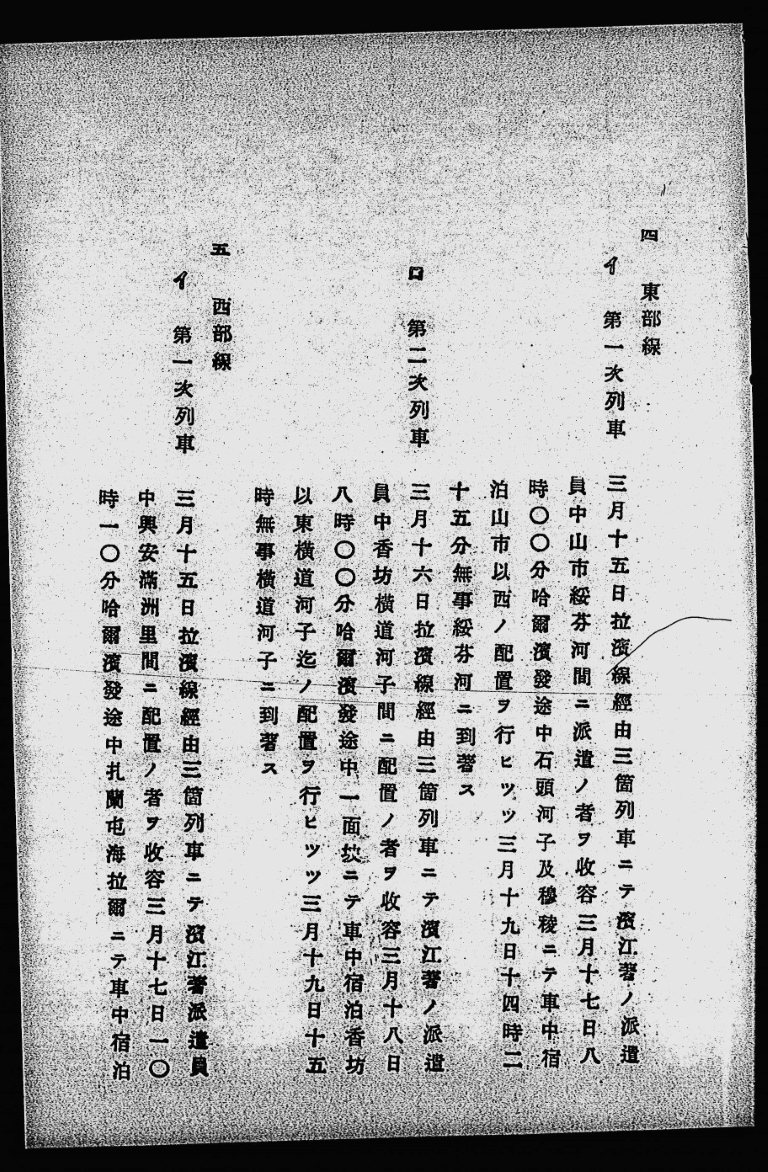 四　東部線
イ　第一次列車　三月十五日拉濱線經由三箇列車ニテ濱江著ノ派遣
員中山市綏芬河間ニ派遣ノ者ヲ收容三月十七日八
時〇〇分哈爾濱發途中石頭河子及穆稜ニテ車中宿
泊山市以西ノ配置ヲ行ヒツツ三月十九日十四時二
十五分無事綏芬河ニ到著ス
ロ　第二次列車　三月十六日拉濱線經由三箇列車ニテ濱江著ノ派遣
員中香坊橫道河子間ニ配置ノ者ヲ收容三月十八日
八時〇〇分哈爾濱發途中一面坡ニテ車中宿泊香坊
以東橫道河子迄ノ配置ヲ行ヒツツ三月十九日十五
時無事橫道河子ニ到著ス
五　西部線
イ　第一次列車　三月十五日拉濱線經由三箇列車ニテ濱江著派遣員
中興安滿洲里間ニ配置ノ者ヲ收容三月十七日一〇
時一〇分哈爾濱發途中扎蘭屯海拉爾ニテ車中宿泊